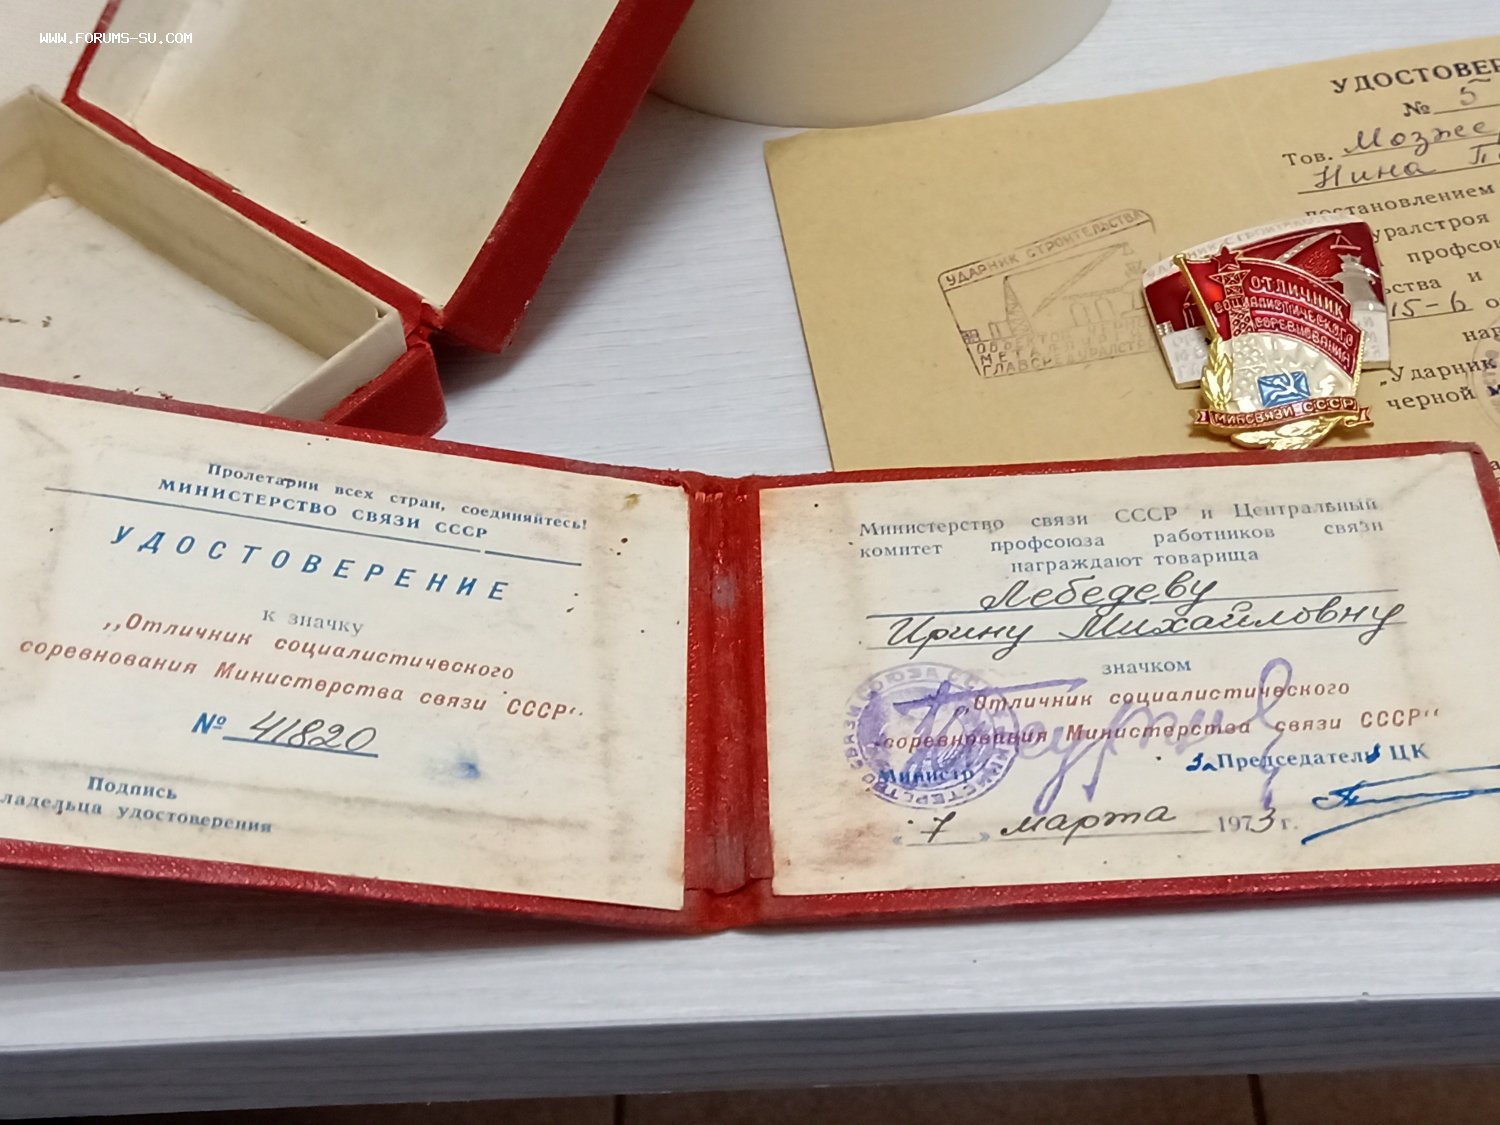 WWW.FORUMS-SU.COM
УДОСТОВЕР
№ 5
Тов. Мозже
Нина
постановлением
уралстроя
профсою
ства и
15-6
на
„Ударник
черной
УДАРНИК СТРОИТЕЛЬСТВА
ОБЪЕКТОВ ЧЕРНО
МЕТАЛЛУР
ГЛАВСРЕДУРАЛСТ
ОТЛИЧНИК
СОЦИАЛИСТИЧЕСКОГО
СОРЕВНОВАНИЯ
МИНСВЯЗИ СССР
Пролетарии всех стран, соединяйтесь!
МИНИСТЕРСТВО СВЯЗИ СССР
УДОСТОВЕРЕНИЕ
к значку
„Отличник социалистического
соревнования Министерства связи СССР“.
№ 41820
Подпись
ладельца удостоверения
Министерство связи СССР и Центральный
комитет профсоюза работников связи
награждают товарища
Лебедеву
Ирину Михайловну
значком
„Отличник социалистического
соревнования Министерства связи СССР“
Министр
За Председатель ЦК
« 7 » марта 1973 г.